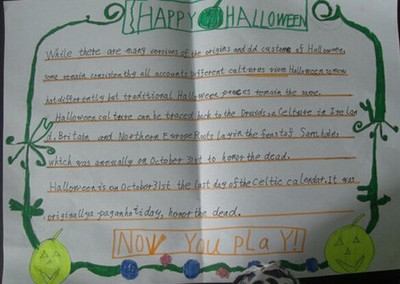 HAPPY HALLOWEEN
While there are many versions of the origins and old customs of Halloween,
some remain consistently all accounts. Different cultures view Halloween somew
hat differently but traditional Halloween remain the same.
Halloween cal can be traced back to the Druids, a Celt in Irelan
d, Britain and Northern Europe Roots lay in the feast of Samhain,
which was annually on October 31st to honor the dead.
Halloween is on October 31st the last day of the Celtic calendar. It was
originally a pagan holiday, honor the dead.
NOW YOU PLAY!